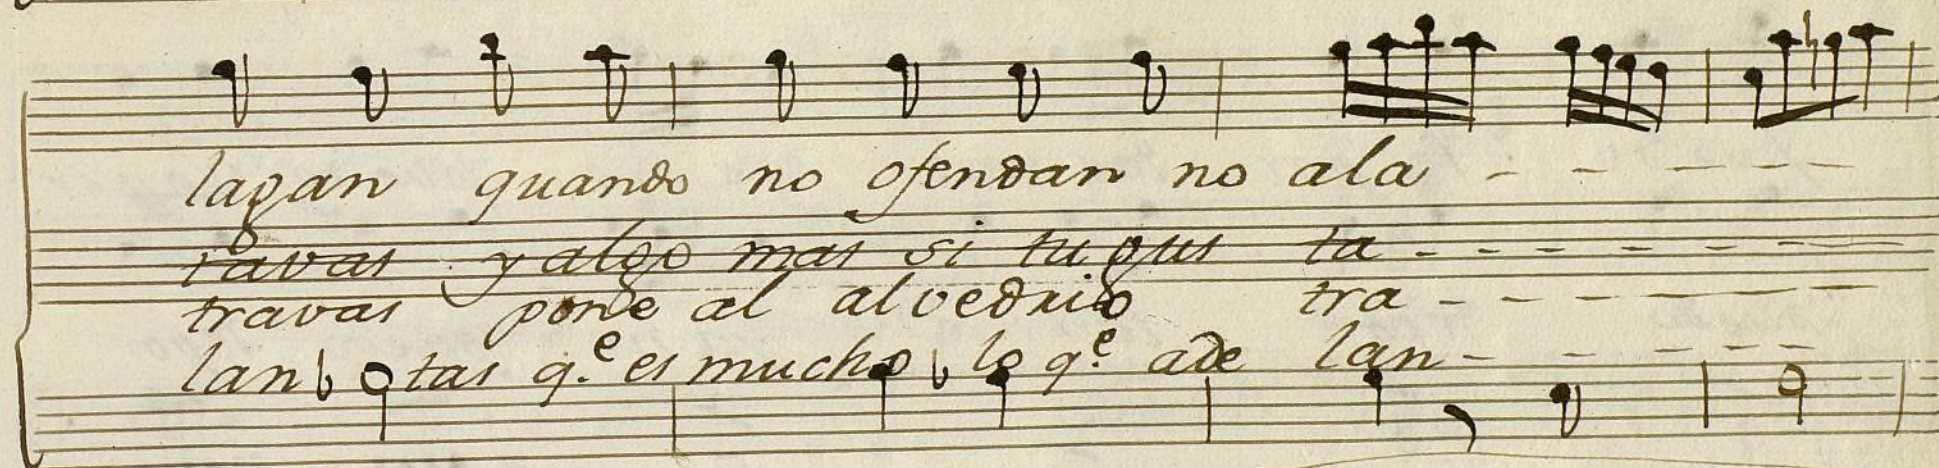 lagan quando no ofendan no ala - - - - - -
ravas y algo mas si tu gus ta - - - - - - -
travas pone al alvedrio tra - - - - - -
lan tas q.e es mucho lo q.e ade lan - - - - -